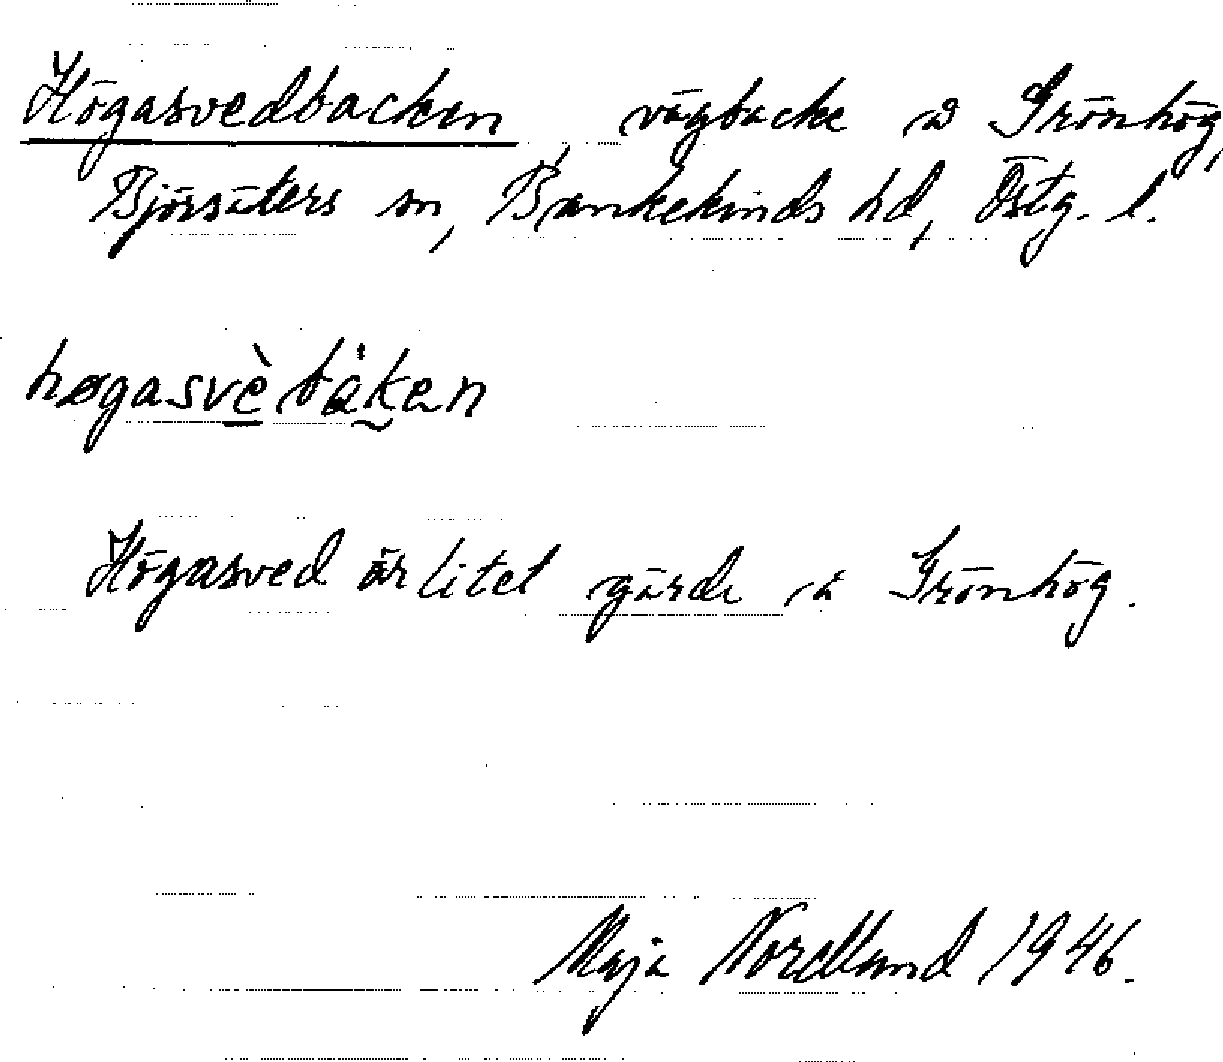 Högasvedbacken, vägbacke å Grönhög,
Björsäters sn, Bankekinds hd, Östg. l.
høgasvèbákan
Högasved är litet gärde å Grönhög.
Maja Nordlund 1946.